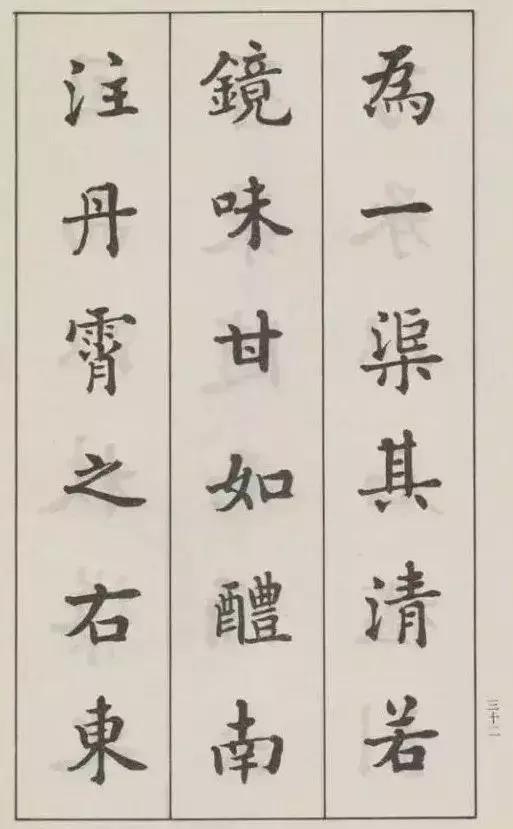 為一渠其清若
鏡味甘如醴南
注丹霄之右東
三十二